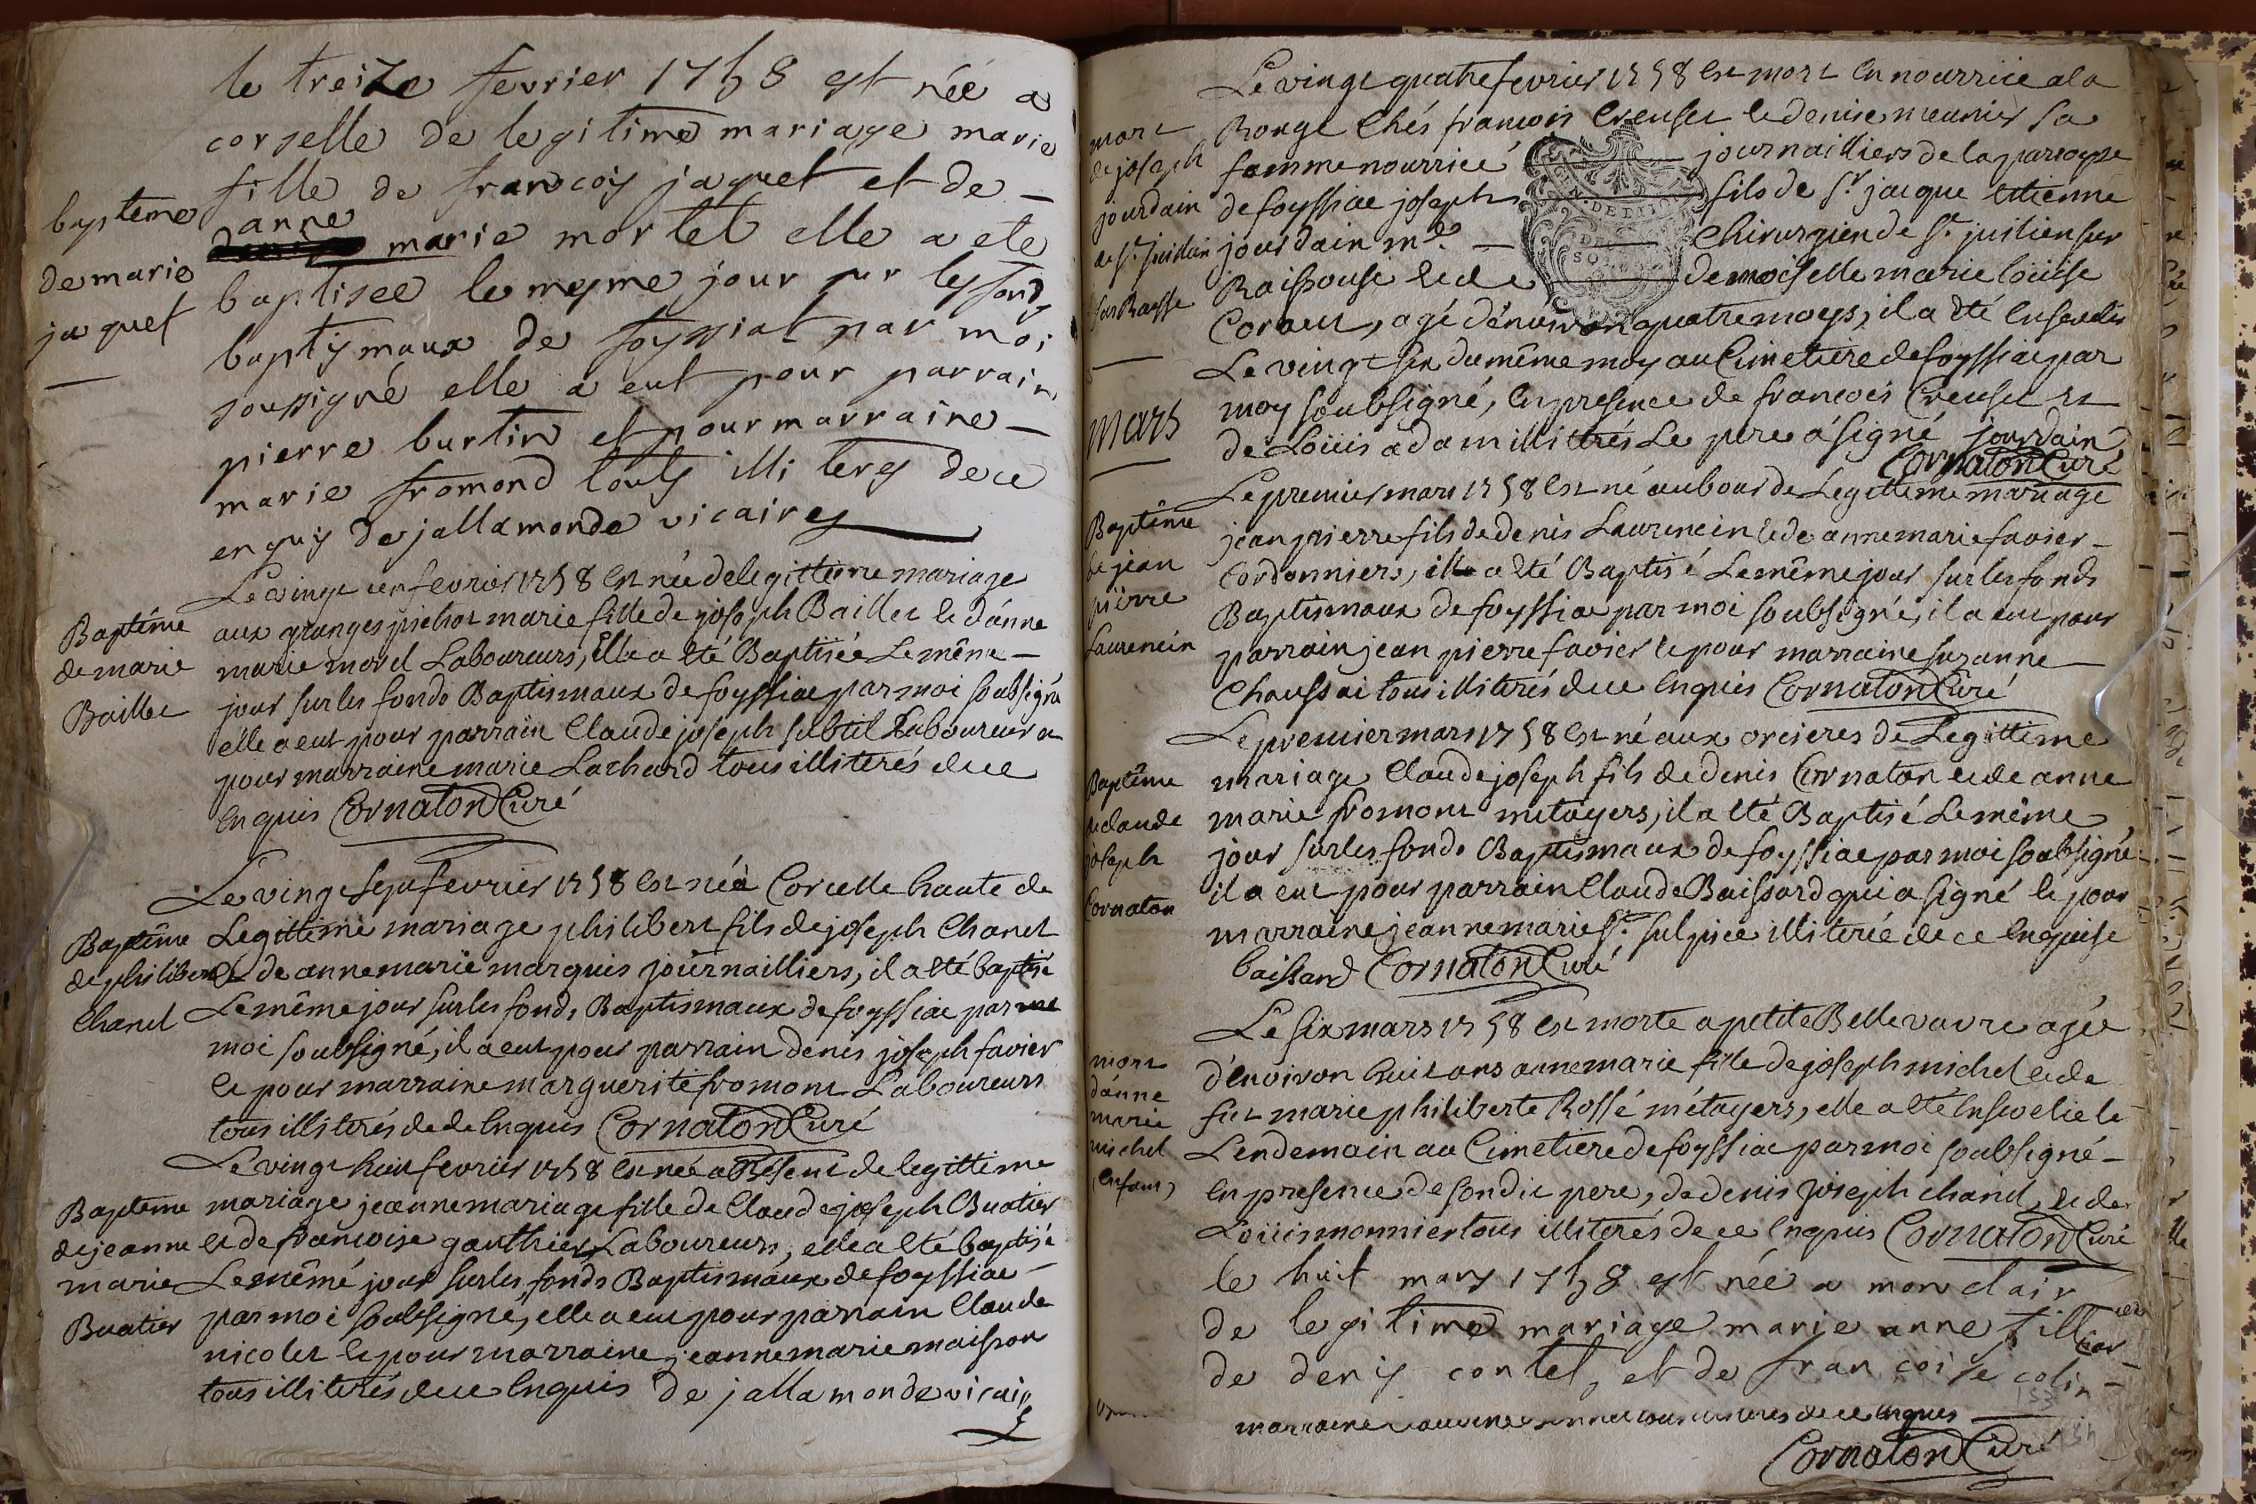 le treize fevrier 1758 est née a
corselle de legitime mariage marie
fille de francois jaquet et de
anne
marie mortel elle a eté
baptisee le mesme jour sur les fonds
baptismaux de foyssiat par moi
soussigné elle a eut pour parrain
pierre burtin et pour marraine
marie fromond touts illiteres de ce
enquis de jallamonde vicaire
bapteme
de marie
jaquet
Le vingt un fevrier 1758 est née de legittime mariage
aux granges pichot marie fille de joseph Baillet et d'anne
marie morel Laboureurs, elle a eté Baptisée Le même
jour sur les fonds Baptismaux de foyssiat par moi soubsigné
elle a eut pour parrain Claude joseph subtil Laboureur et
pour marraine marie Lachard tous illiterés de ce
Enquis Cornaton Curé
Baptême
de marie
Baillet
Le vingt sept fevrier 1758 est né a Corcelle haute de
Legittime mariage philibert fils de joseph Chanel
et de anne marie marquis journailliers, il a eté baptisé
Le même jour sur les fonds Baptismaux de foyssiat par
moi soubsigné, il a eut pour parrain denis joseph favier
et pour marraine marguerite fromont Laboureurs
tous illiterés de de Enquis Cornaton Curé
Baptême
de philibert
Chanel
Le vingt huit fevrier 1758 est née a de legittime
mariage jeanne mariage fille de Claude joseph Buatier
et de francoise gauthier Laboureurs, elle a eté baptisé
Le même jour sur les fonds Baptismaux de foyssiat
par moi soubsigné, elle a eut pour parrain Claude
nicolet et pour marraine jeanne marie maisson
tous illiterés de ce Enquis de jallamonde vicaire
Bapteme
de jeanne
marie
Buatier
Le vingt quatre fevrier 1758 est mort en nourrice a la
Ronge chés francois Creuset et denise meunier sa
femme nourrice journailliers de la parroysse
de foyssiat joseph fils de Sr. jacque Etienne
jourdain md. Chirurgien de St. julien sur
Raissouse et de demoiselle marie loüise
agé d'environ quatre moys, il a eté Enseveli
Le vingt six du même moy au Cimetiere de foyssiat par
moy soubsigné, En presence de francois Creuset et
de Loüis adam illiterés Le pere a signé jourdain
Cornaton Curé
mort
de joseph
jourdain
de St. julien
sur Raysse
mars
Le premier mars 1758 est né au bour de Legitteme mariage
jean pierre fils de denis Laurencin et de anne marie favier
Cordonniers, il a eté Baptisé Le même jour sur les fonds
Baptismaux de foyssiat par moi soubsigné, il a eut pour
parrain jean pierre favier et pour marraine suzanne
Chaussai tous illiterés de ce Enquis Cornaton Curé
Baptême
de jean
pierre
Laurencin
Le premier mars 1758 est né aux orcieres de Legittime
mariage Claude joseph fils de denis Cornaton et de anne
marie fromont metayers, il a eté Baptisé Le même
jour sur les fonds Baptismaux de foyssiat par moi soubsigné
il a eut pour parrain Claude Baissard qui a signé et pour
marraine jeanne marie St. sulpice illiterée de ce Enquise
baissard Cornaton Curé
Baptême
de claude
joseph
Cornaton
Le six mars 1758 est morte a petite Belle vavre agée
d'environ huit ans anne marie fille de joseph michel et de
fut marie philiberte Rossé métayers, elle a eté Ensevelie le
Lendemain au Cimetiere de foyssiat par moi soubsigné
En presence de sondit pere, de denis joseph chanel, et de
Loüis monnier tous illiterés de ce Enquis Cornaton Curé
mort
d'anne
marie
michel
(enfant)
le huit mars 1758 est née a monclair
de legitime mariage marie anne fille
de denis contet, et de francoise colin
marraine de ce Enquis
Cornaton Curé